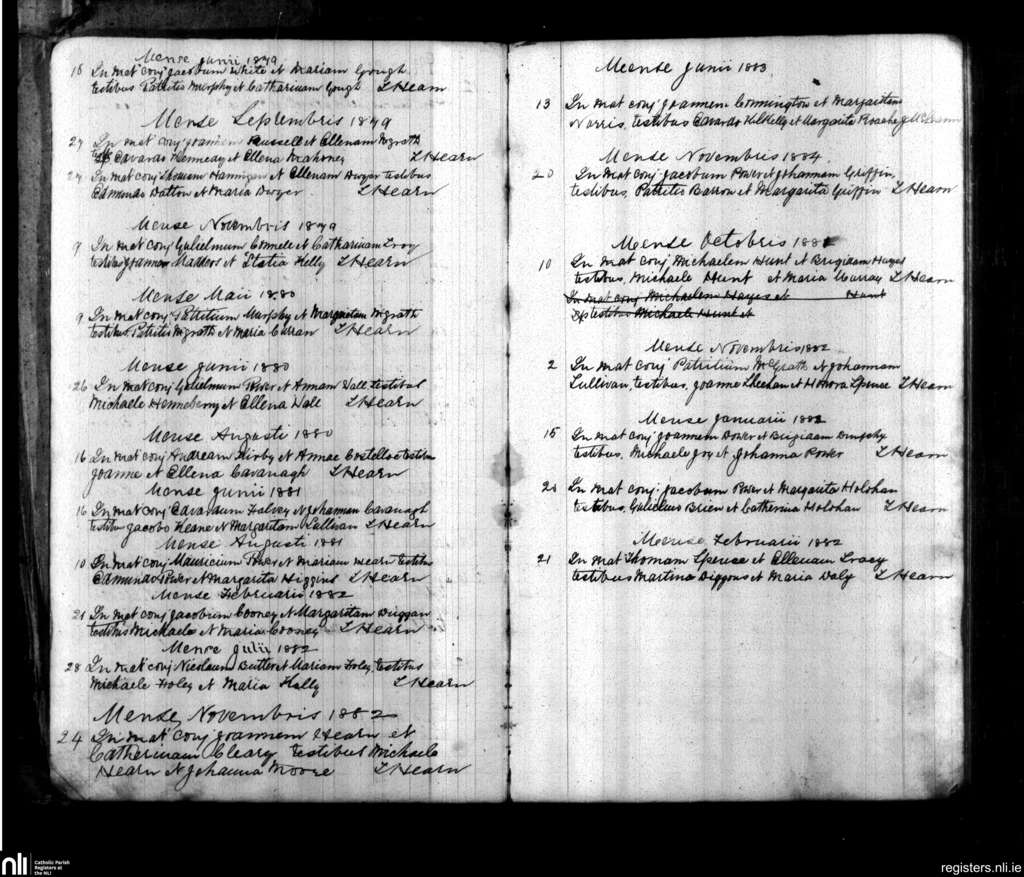 Mense Junii 1879
18 In mat conj Jacobum White et Mariam Gough
testibus Patritis Murphy et Catharinam Gough T Hearn
Mense Septembris 1879
27 In mat conj Joannem Russell et Ellenam McGrath
Edvardo Kennedy et Ellena Mahoney T Hearn
27 In mat conj Thomam Hannigan et Ellenam Dwyer testibus
Edmundo Dalton et Maria Dwyer T Hearn
Mense Novembris 1879
9 In mat conj Gulielmum et Catharinam
testibus Joanne et Statia Kelly T Hearn
Mense Maii 1880
9 In mat conj Patritium Murphy et Margaritam McGrath
testibus Patritis McGrath et Maria Curran T Hearn
Mense Junii 1880
26 In mat conj Gulielmum Power et Annam Wall testibus
Michaele Henneberry et Ellena Wall T Hearn
Mense Augusti 1880
16 In mat conj Andream Kirby et Annae Costello testibus
Joanne et Ellena Cavanagh T Hearn
Mense Junii 1881
16 In mat conj et Johannam Cavanagh
testibus Jacobo Keane et Margaritam Sullivan T Hearn
Mense Augusti 1881
10 In mat conj Mauricium Power et Mariam Hearn testibus
Edmundo Power et Margarita Higgins T Hearn
Mense Februarii 1882
21 In mat conj Jacobum Cooney et Margaritam Duggan
testibus Michaele et Maria Cooney T Hearn
Mense Julii 1882
28 In mat conj Nicolaum Butler et Mariam Foley testibus
Michaele Foley et Maria Kelly T Hearn
Mense Novembris 1882
24 In mat conj Joannem Hearn et
Catherinam Cleary testibus Michaele
Hearn et Johanna Moore T Hearn
Mense Junii 1883
13 In mat conj Joannem Connington et Margaritam
Norris, testibus Edvardo Kelly et Margarita Roache
Mense Novembris 1884
20 In mat conj Jacobum Power et Johannam Griffin,
testibus, Patritis Barron et Margarita Griffin T Hearn
Mense Octobris 188
10 In mat conj Michaelem Hunt et Brigidam Hayes
testibus, Michaele Hunt et Maria Murray T Hearn
In mat conj Michaelem Hayes et Hunt
testibus Michaele Hunt et
Mense Novembris 1882
2 In mat conj Patritium McGrath et Johannam
Sullivan, testibus, Joanne Sheehan et Honora Spruce T Hearn
Mense Januarii 1882
15 In mat conj Joannem Power et Brigidam Dunphy
testibus, Michaele Joy et Johanna Power T Hearn
In mat conj Jacobum Power et Margarita Holohan
testibus, Gulielmo Brien et Catherina Holohan T Hearn
Mense Februarii 1882
21 In mat Thomam Spruce et Ellenam Tracy
testibus Martino Diggons et Maria Daly T Hearn
nli Catholic Parish
Registers at
the NLI
registers.nli.ie